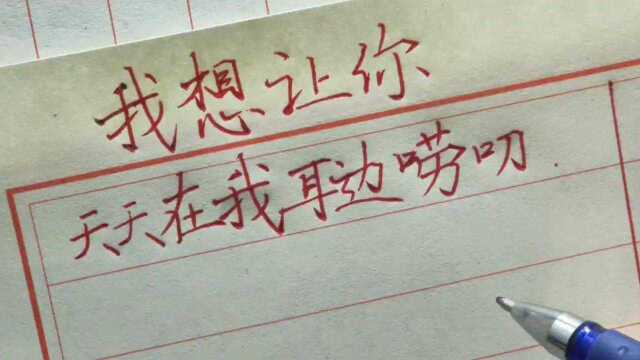 我想让你
天天在我耳边唠叨.